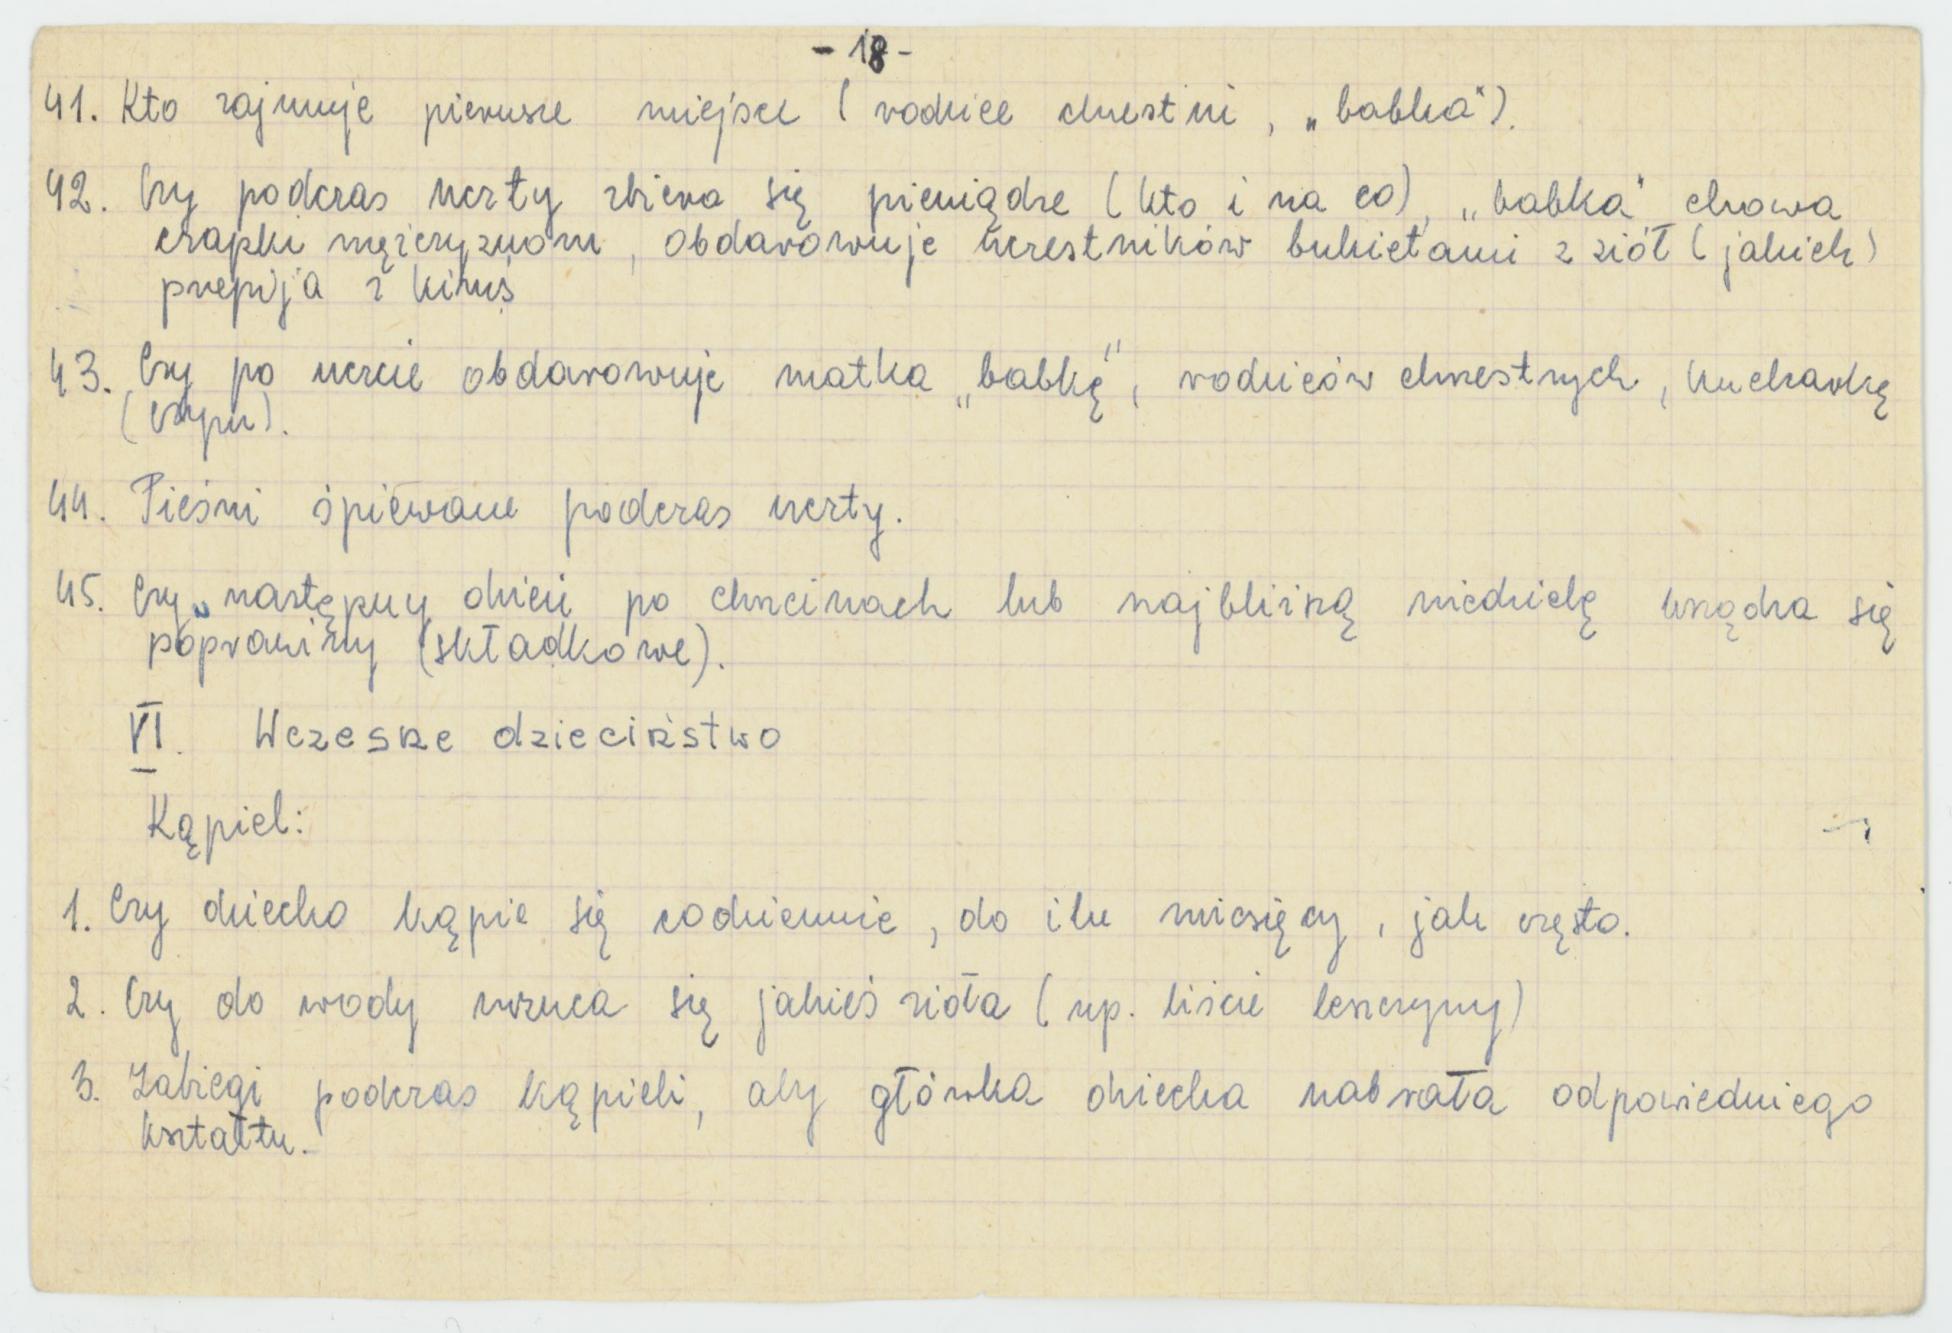 - 18 -
41. Kto zajmuje pierwsze miejsce (rodzice chrzestni, „babka").
42. Czy podczas uczty zbiera się pieniądze (kto i na co), „babka" chowa
czapki mężczyznom, obdarowuje uczestników bukietami z ziół (jakich)
przepija z kimś
43. Czy po uczcie obdarowuje matka „babkę", rodziców chrzestnych, kucharkę
(czym).
44. Pieśni śpiewane podczas uczty.
45. Czy następny dzień po chrzcinach lub najbliższą niedzielę urządza się
poprawiny (składkowe).
VI. Wczesne dzieciństwo
Kąpiel:
1. Czy dziecko kąpie się codziennie, do ilu miesięcy, jak często.
2. Czy do wody wrzuca się jakieś zioła (np. liście leszczyny)
3. Zabiegi podczas kąpieli, aby główka dziecka nabrała odpowiedniego
kształtu.